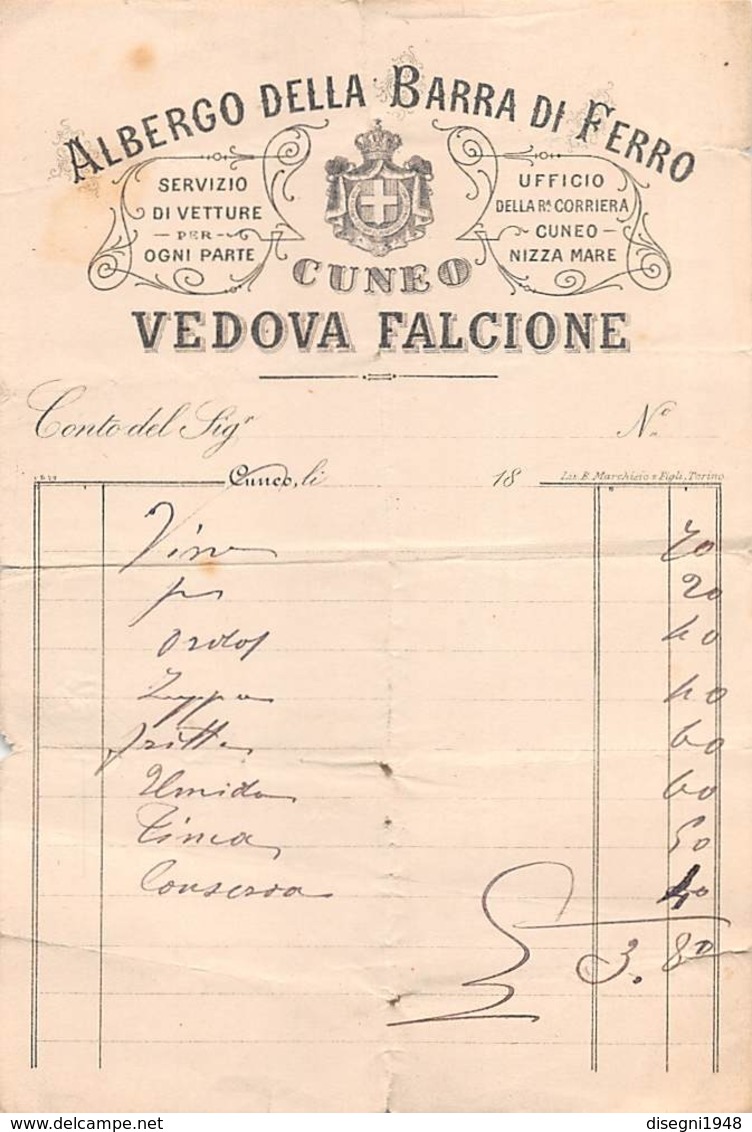 ALBERGO DELLA BARRA DI FERRO
SERVIZIO
DI VETTURE
PER
OGNI PARTE
UFFICIO
DELLA Rᴬ CORRIERA
CUNEO
NIZZA MARE
CUNEO
VEDOVA FALCIONE
Conto del Sigʳ Nº
Cuneo, li 18 Lit. F. Marchisio e Figli, Torino
Vino 70
20
40
Zuppa 40
fritto 60
Umido 60
Tinca 50
Conserva 40
3.80
delcampe.net
disegni1948